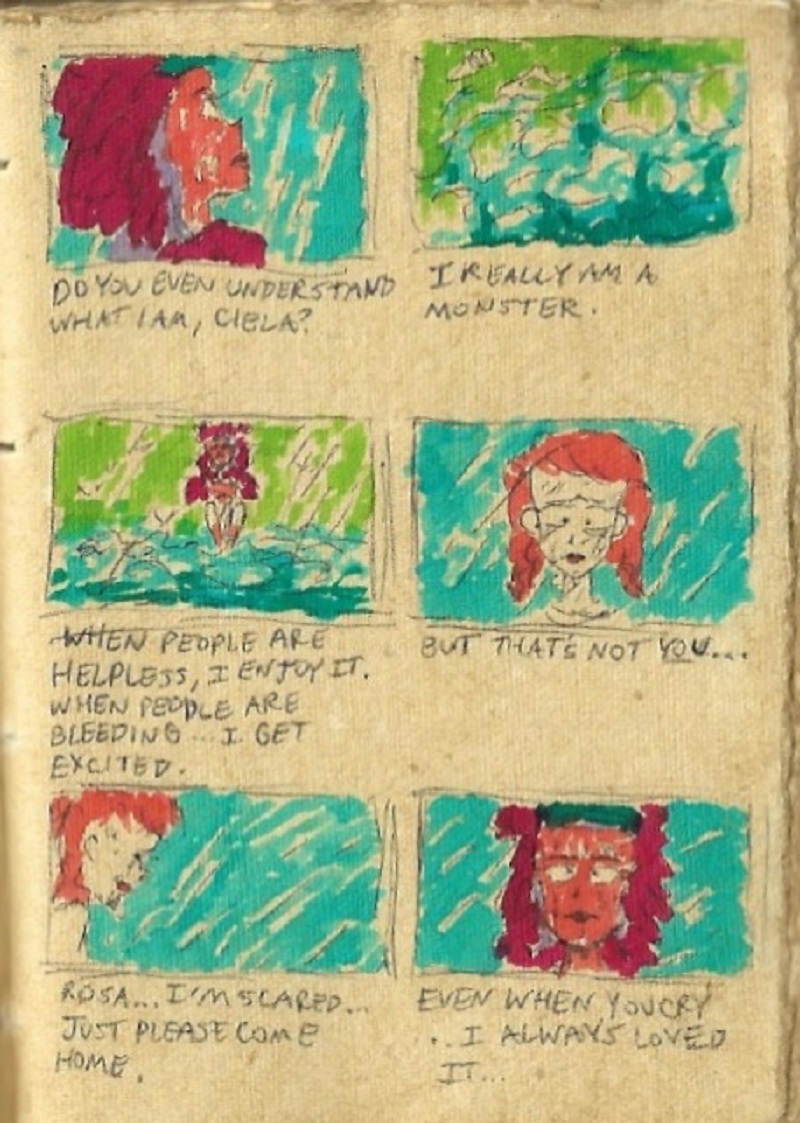 DO YOU EVEN UNDERSTAND
WHAT I AM, CIELA?
I REALLY AM A
MONSTER.
WHEN PEOPLE ARE
HELPLESS, I ENJOY IT.
WHEN PEOPLE ARE
BLEEDING... I GET
EXCITED.
BUT THAT'S NOT YOU...
ROSA... I'M SCARED...
JUST PLEASE COME
HOME.
EVEN WHEN YOU CRY
.. I ALWAYS LOVED
IT...